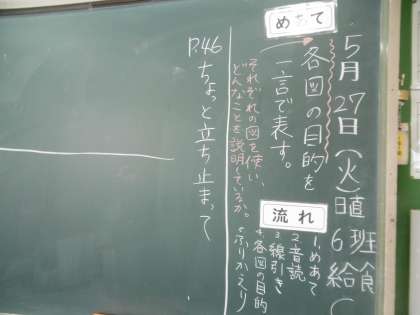 5月27日(火)
6班
給食
めあて
各図の目的を
一言で表す。
それぞれの図を使い、
どんなことを説明しているか。
流れ
1.めあて
2音読
3線引き
4.各図の目的
5ふりかえり
P.46 ちょっと立ち止まって